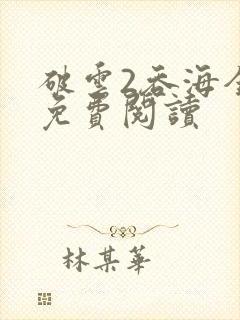 破雲2吞海全
免費閱讀
林某華